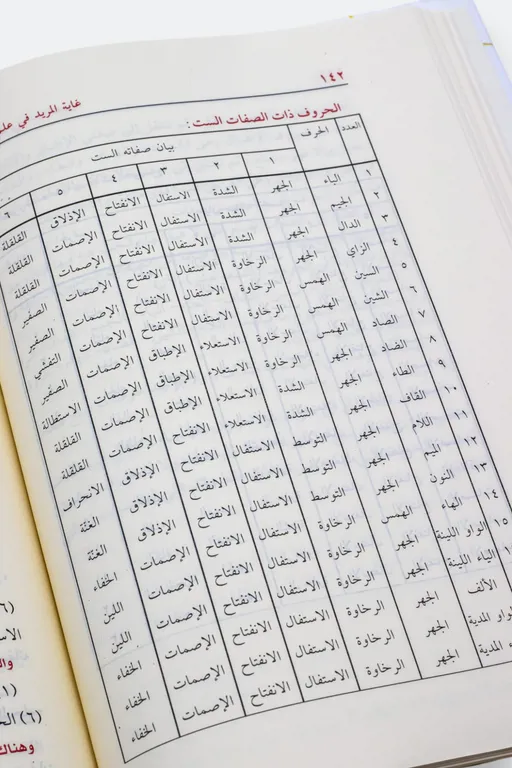 ١٤٢ غاية المريد في
الحروف ذات الصفات الست :
العدد الحرف بيان صفاته الست
١ ٢ ٣ ٤ ٥ ٦
١ الباء الجهر الشدة الاستفال الانفتاح الإذلاق القلقلة
٢ الجيم الجهر الشدة الاستفال الانفتاح الإصمات القلقلة
٣ الدال الجهر الشدة الاستفال الانفتاح الإصمات القلقلة
٤ الزاي الجهر الرخاوة الاستفال الانفتاح الإصمات الصفير
٥ السين الهمس الرخاوة الاستفال الانفتاح الإصمات الصفير
٦ الشين الهمس الرخاوة الاستفال الانفتاح الإصمات التفشي
٧ الصاد الهمس الرخاوة الاستعلاء الإطباق الإصمات الصفير
٨ الضاد الجهر الرخاوة الاستعلاء الإطباق الإصمات الاستطالة
٩ الطاء الجهر الشدة الاستعلاء الإطباق الإصمات القلقلة
١٠ القاف الجهر الشدة الاستعلاء الانفتاح الإصمات القلقلة
١١ اللام الجهر التوسط الاستفال الانفتاح الإذلاق الانحراف
١٢ الميم الجهر التوسط الاستفال الانفتاح الإذلاق الغنة
١٣ النون الجهر التوسط الاستفال الانفتاح الإذلاق الغنة
١٤ الهاء الهمس الرخاوة الاستفال الانفتاح الإصمات الخفاء
١٥ الواو اللينة الجهر الرخاوة الاستفال الانفتاح الإصمات اللين
الياء اللينة الجهر الرخاوة الاستفال الانفتاح الإصمات اللين
الألف الجهر الرخاوة الاستفال الانفتاح الإصمات الخفاء
الواو المدية الجهر الرخاوة الاستفال الانفتاح الإصمات الخفاء
المدية الجهر الرخاوة الاستفال الانفتاح الإصمات الخفاء
(١)
(٦)
وهناك